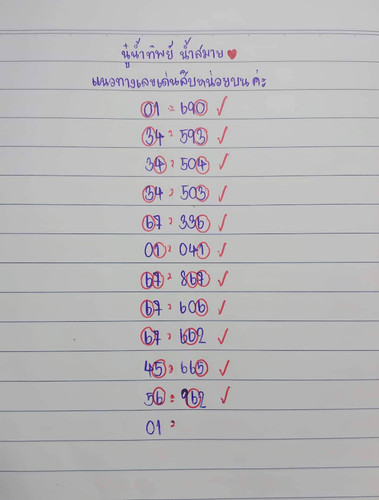 นู๋น้ำทิพย์ น้ำสมาย ❤
แนวทางเลขเด่นสิบหน่วยบน ค่ะ
01 = 690 ✓
34 = 593 ✓
34 = 504 ✓
34 = 503 ✓
67 = 336 ✓
01 = 041 ✓
67 = 867 ✓
67 = 606 ✓
67 = 662 ✓
45 = 665 ✓
56 = 962 ✓
01 =